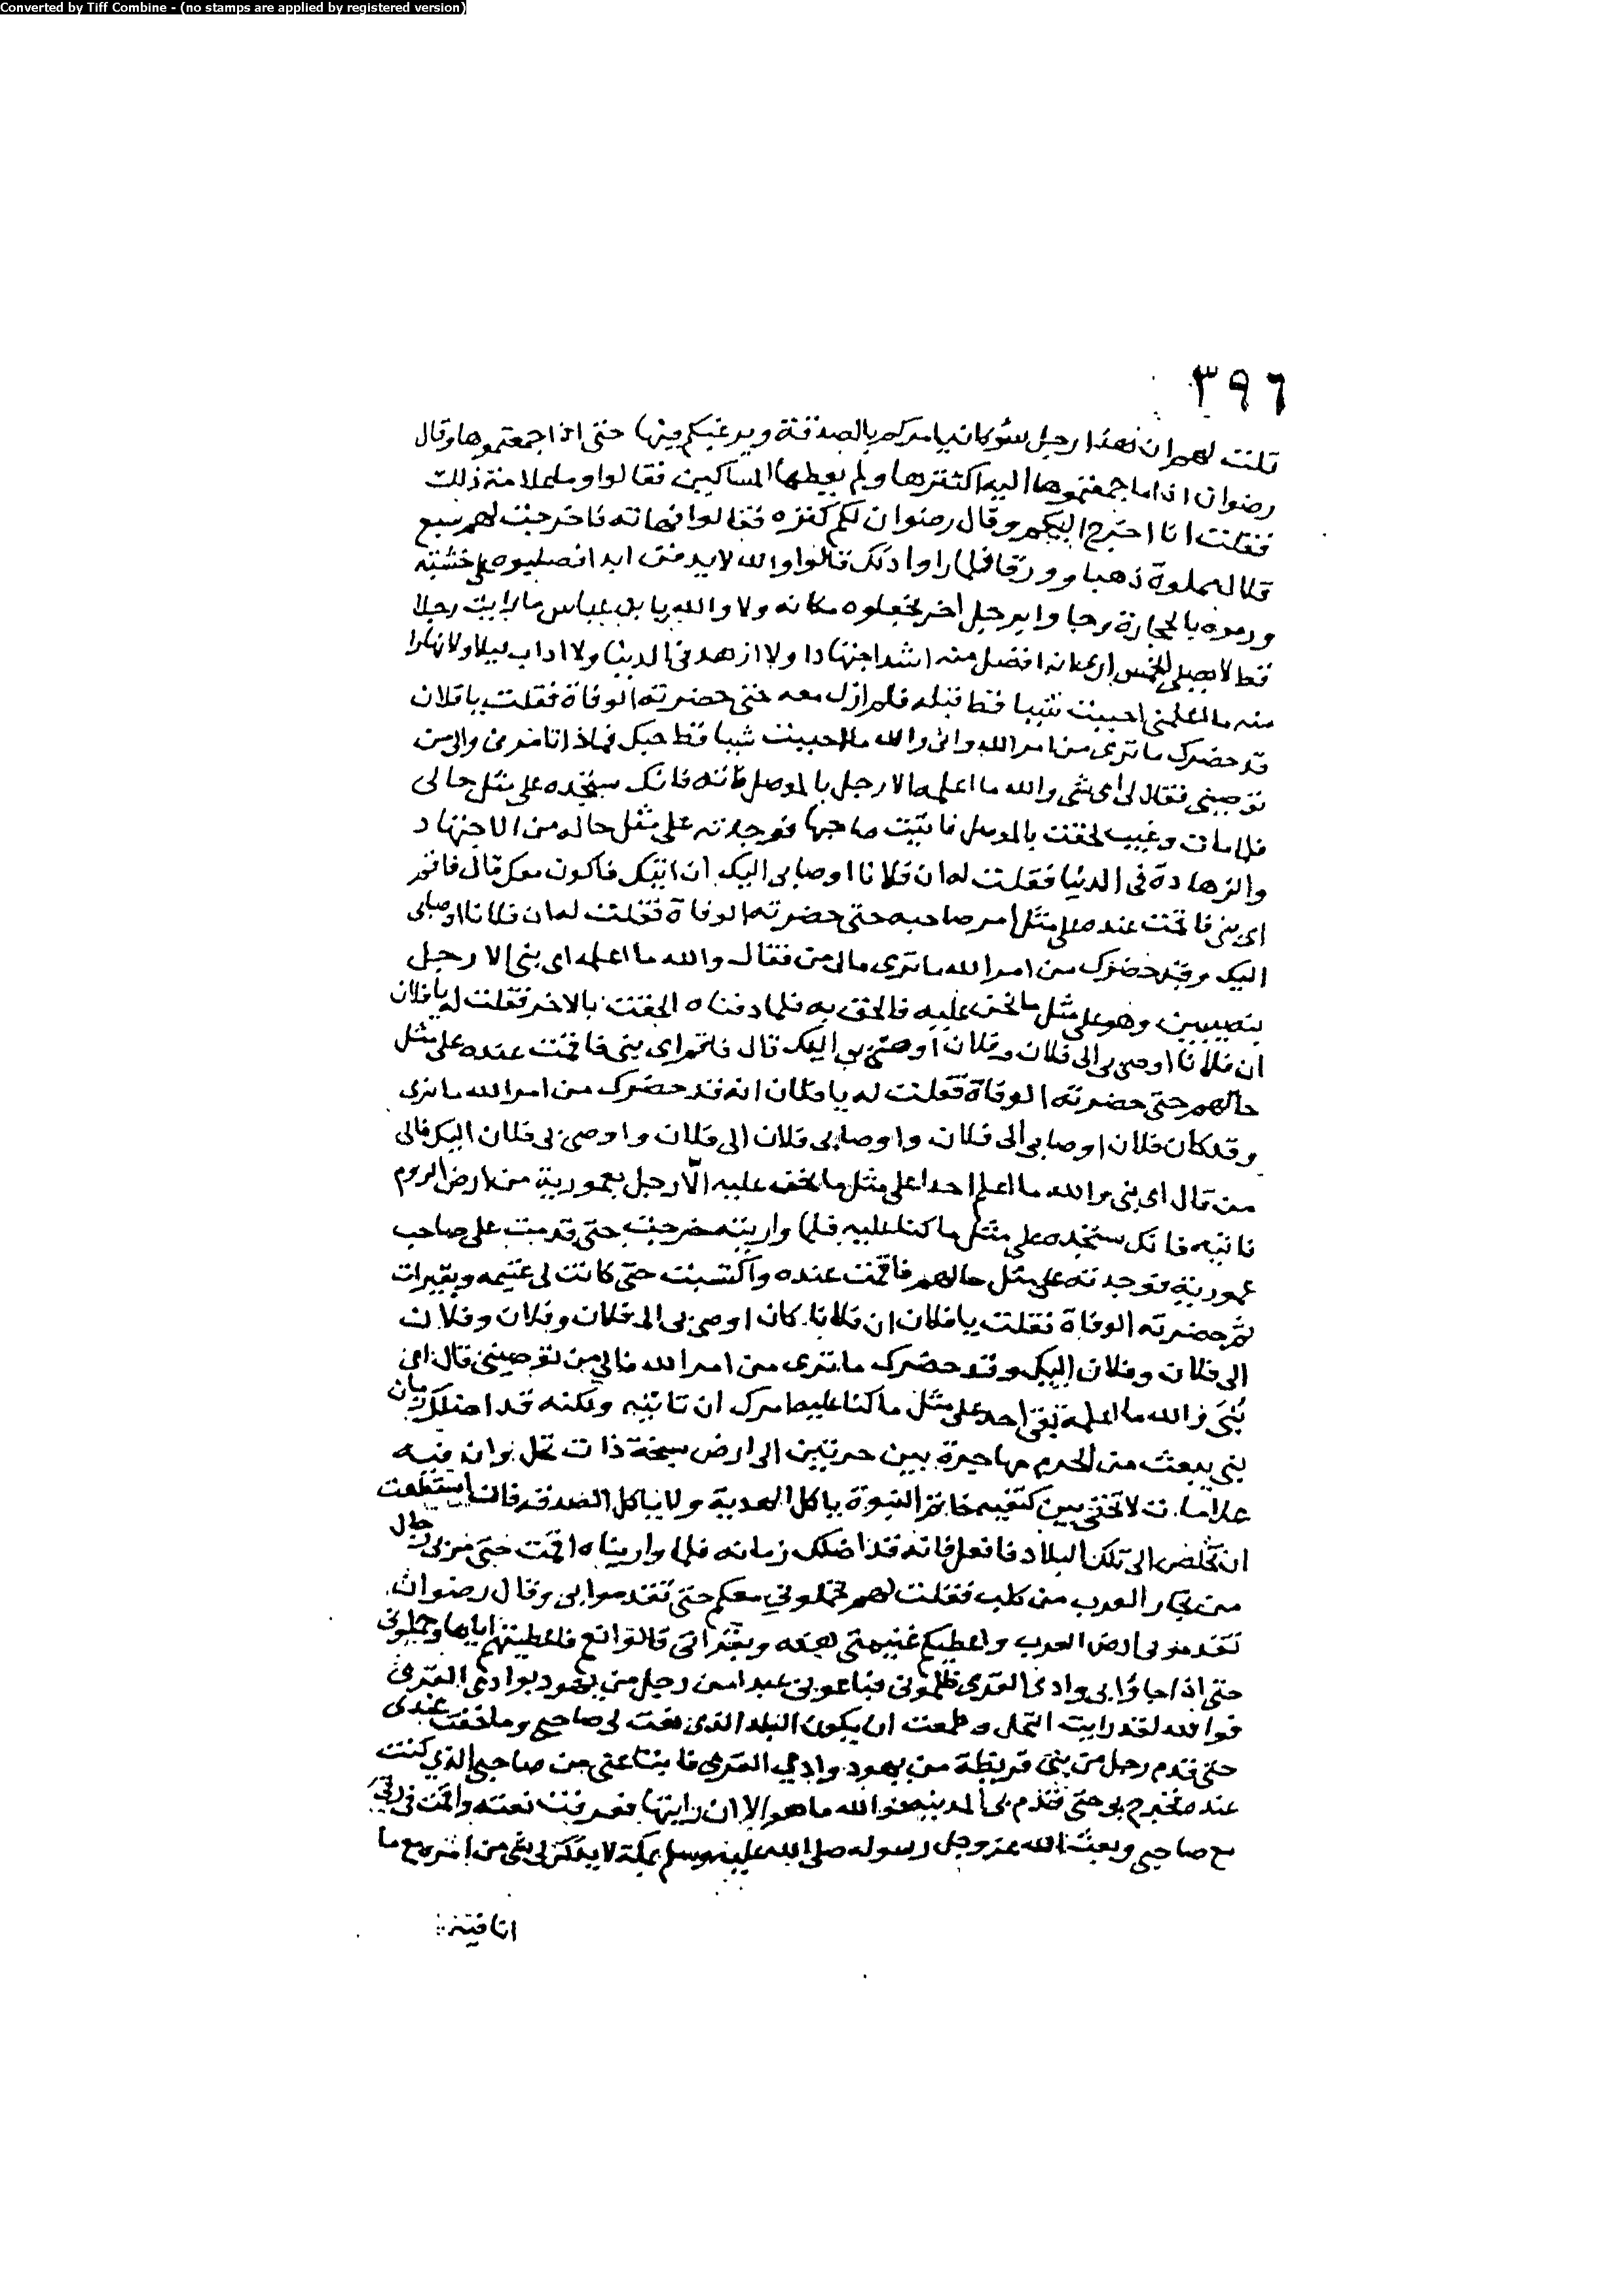 Converted by Tiff Combine - (no stamps are applied by registered version)
٣٩٦
قلت لهم ان هذا رجل سؤ كان يامركم بالصدقة ويرغبكم فيها حتى اذا جمعتموها وقال
رضوان اذا ما جمعتموها اليه اكتنزها ولم يعطها المساكين فقالوا وما علامة ذلك
فقلت انا اخرج اليكم وقال رضوان لكم كنزه فقالوا فهاته فاخرجت لهم سبع
قلال مملوة ذهبا وورقا فلما راوا ذلك قالوا والله لا يدفن ابدا فصلبوه على خشبة
ورموه بالحجارة وجاوا برجل اخر فجعلوه مكانه ولا والله يا بن عباس ما رايت رجلا
قط لا يصلي الخمس ارى انه افضل منه اشد اجتهادا ولا ازهد في الدنيا ولا اداب ليلا ولا نهارا
منه ما اعلمني احببت شيا قط قبله فلم ازل معه حتى حضرته الوفاة فقلت يا فلان
قد حضرك ما ترى من امر الله واني والله ما احببت شيا قط حبك فماذا تامرني والى من
توصيني فقال لي اى بني والله ما اعلمه الا رجل بالموصل فاته فانك ستجده على مثل حالى
فلما مات وغيب لحقت بالموصل فاتيت صاحبها فوجدته على مثل حاله من الاجتهاد
والزهادة في الدنيا فقلت له ان فلانا اوصا بى اليك ان اتيك فاكون معك قال فاقم
اى بني فاقمت عنده على مثل امر صاحبه حتى حضرته الوفاة فقلت له ان فلانا اوصابى
اليك وقد حضرك من امر الله ما ترى فالى من فقال والله ما اعلمه اى بني الا رجل
بنصيبين وهو على مثل ما نحن عليه فالحق به فلما دفناه الحقت بالاخر فقلت له يا فلان
ان فلانا اوصى بى الى فلان وفلان اوصى بى اليك قال فاقم اى بني فاقمت عنده على مثل
حالهم حتى حضرته الوفاة فقلت له يا فلان انه قد حضرك من امر الله ما ترى
وقد كان فلان اوصا بى الى فلان واوصا بى فلان الى فلان واوصى بى فلان اليك فالى
من قال اى بني والله ما اعلم احدا على مثل ما نحن عليه الّا رجل بعمورية من ارض الروم
فاتيه فانك ستجده على مثل ما كنا عليه فلما واريته خرجت حتى قدمت على صاحب
عمورية فوجدته على مثل حالهم فاقمت عنده واكتسبت حتى كانت لى غنيمه وبقيرات
ثم حضرته الوفاة فقلت يا فلان ان فلانا كان اوصى بى الى فلان وفلان وفلان
الى فلان وفلان اليك وقد حضرك ما ترى من امر الله فالى من توصيني قال اى
بُنَيّ والله ما اعلمه بقى احد على مثل ما كنا عليه امرك ان تاتيه ولكنه قد اضلك زمان
نبي يبعث من الحرم مهاجرة بين حرتين الى ارض سبخة ذات نخل وان فيه
علامات لا تخفى بين كتفيه خاتم النبوة ياكل الهدية ولا ياكل الصدقة فان استطعت
ان تخلص الى تلك البلاد فافعل فانه قد اضلك زمانه فلما واريناه اقمت حتى مر بى رجال
من تجار العرب من كلب فقلت لهم تحملوني معكم حتى تقدموا بى وقال رضوان
تقدمو بى ارض العرب واعطيكم غنيمتي هذه وبقراتى قالوا نعم فاعطيتهم اياها وحملونى
حتى اذا جاؤا بى وادى القرى ظلمونى فباعونى عبدا من رجل من يهود بوادى القرى
فوالله لقد رايت النخل وطمعت ان يكون البلد الذى نعت لى صاحبى وما خفت عندى
حتى قدم رجل من بني قريظة من يهود وادي القرى فابتاعنى من صاحبى الذي كنت
عنده فخرج بى حتى قدم بى المدينة فوالله ما هو الا ان رايتها فعرفت نعته واقمت فى رقى
مع صاحبى وبعث الله عز وجل رسوله صلى الله عليه وسلم بمكة لا يذكر لى شى من امره مع ما
انا فيه